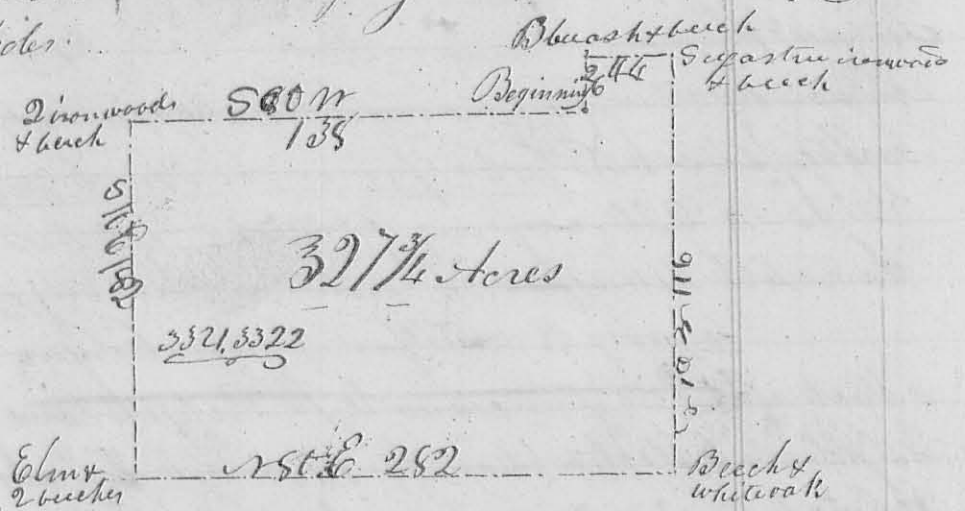 Blueash & beech
Sugartree ironwood
& beech
244
Beginning
2 ironwoods
& beech
S80 W
138
327¾ Acres
3321.3322
N80 E 282
Elm &
2 beeches
Beech &
whiteoak